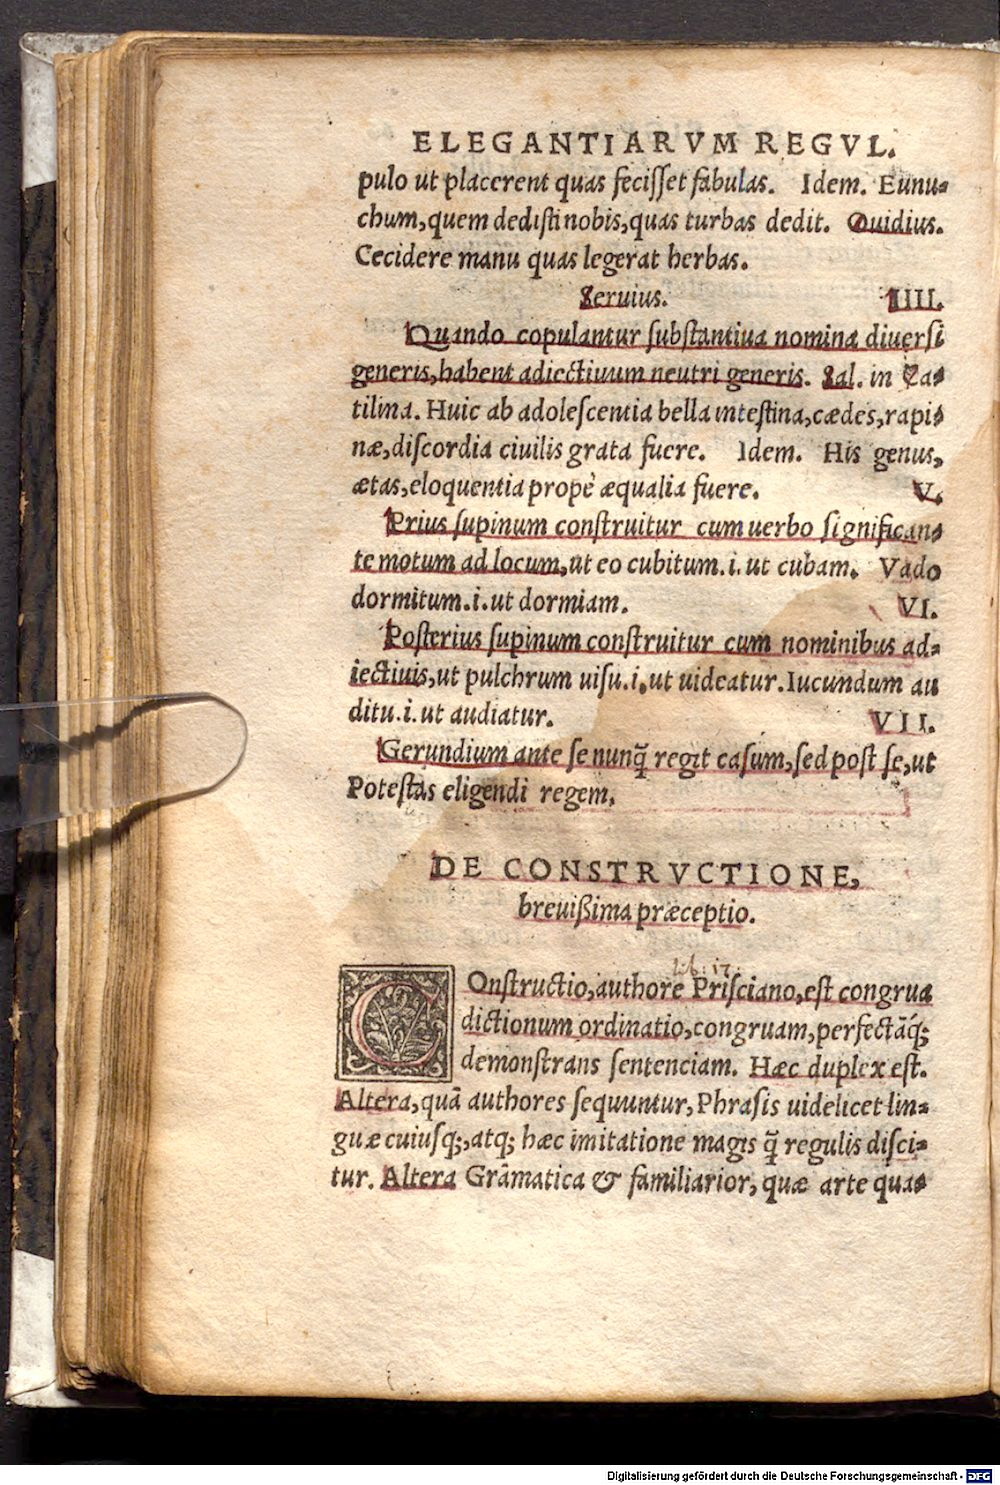 ELEGANTIARVM REGVL.
pulo ut placerent quas fecisset fabulas. Idem. Eunu-
chum, quem dedisti nobis, quas turbas dedit. Ouidius.
Cecidere manu quas legerat herbas.
Seruius. IIII.
Quando copulantur substantiua nomina diuersi
generis, habent adiectiuum neutri generis. Sal. in Ca-
tilina. Huic ab adolescentia bella intestina, cædes, rapi-
næ, discordia ciuilis grata fuere. Idem. His genus,
ætas, eloquentia prope æqualia fuere. V.
Prius supinum construitur cum uerbo significan-
te motum ad locum, ut eo cubitum. i. ut cubam. Vado
dormitum. i. ut dormiam. VI.
Posterius supinum construitur cum nominibus ad-
iectiuis, ut pulchrum uisu. i. ut uideatur. Iucundum au
ditu. i. ut audiatur. VII.
Gerundium ante se nunq̃ regit casum, sed post se, ut
Potestas eligendi regem.
DE CONSTRVCTIONE,
breuißima præceptio.
lib: 17.
COnstructio, authore Prisciano, est congrua
dictionum ordinatio, congruam, perfectāq́;
demonstrans sentenciam. Hæc duplex est.
Altera, quā authores sequuntur, Phrasis uidelicet lin-
guæ cuiusq;, atq; hæc imitatione magis q̃ regulis disci-
tur. Altera Grāmatica & familiarior, quæ arte quas
Digitalisierung gefördert durch die Deutsche Forschungsgemeinschaft - DFG